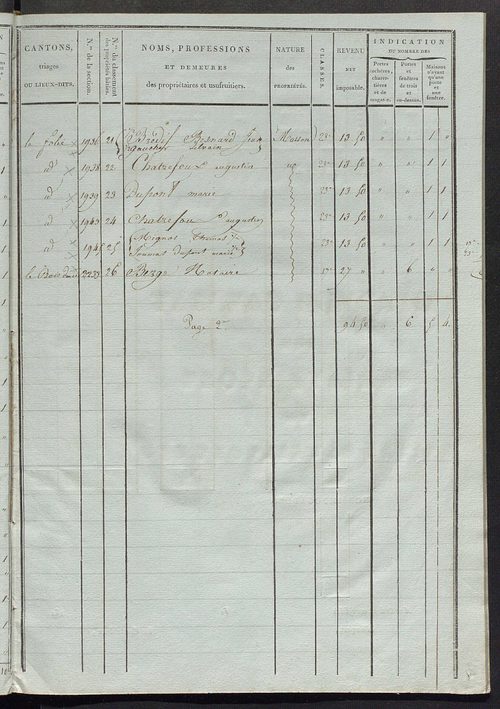 CANTONS, triages OU LIEUX-DITS. N.os de la section. N.os du classement des propriétés bâties. NOMS, PROFESSIONS ET DEMEURES des propriétaires et usufruitiers. NATURE des PROPRIÉTÉS. CLASSES. REVENU NET imposable. INDICATION DU NOMBRE DES Portes cochères, charretières et de magasin. Portes et fenêtres de trois et au-dessus. Maisons n'ayant qu'une porte et une fenêtre.
la folie 1936 21 Bernard Jean Maison 23e 13 50 " " 1 "
Silvain
id 1938 22 Chatrefoux augustin id 23e 13 50 " " 1 1
id 1939 23 Dupont marie 23e 13 50 " " 1 1
id 1943 24 Chatrefou augustin 23e 13 50 " " 1 1
id 1945 25 Mignot Thomas 23e 13 50 " " 1 1
Dupont marie
2233 26 Notaire 27 " " 6 " "
Page 2e 94 50 " 6 5 4